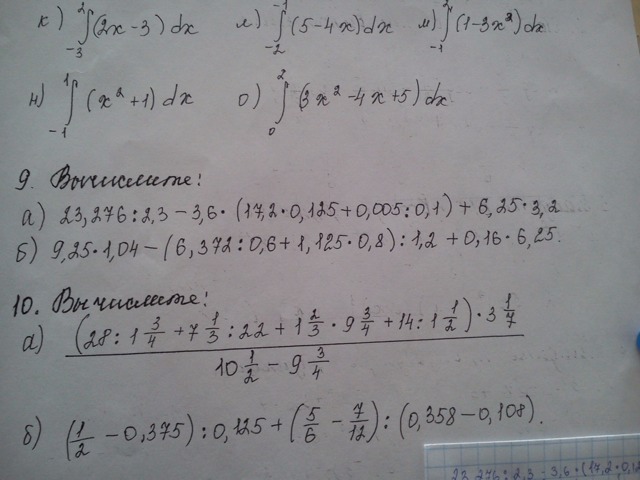 к) ∫₋₃² (2x-3) dx   л) ∫₋₂⁻¹ (5-4x) dx   м) ∫₋₁² (1-3x²) dx
н) ∫₋₁¹ (x²+1) dx   о) ∫₀² (3x²-4x+5) dx
9. Вычислите!
а) 23,276:2,3-3,6·(17,2·0,125+0,005:0,1)+6,25·3,2
б) 9,25·1,04-(6,372:0,6+1,125·0,8):1,2+0,16·6,25.
10. Вычислите!
а) (28:1 3/4+7 1/3:22+1 2/3·9 3/4+14:1 1/2)·3 1/7
10 1/2-9 3/4
б) (1/2-0,375):0,125+(5/6-7/12):(0,358-0,108).
23,276:2,3-3,6·(17,2·0,12